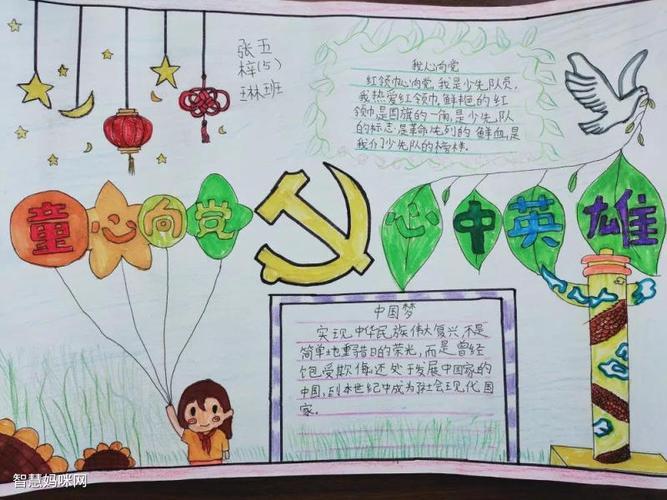 张 五
梓(5)
琳班
我心向党
红领巾心向党，我是少先队员，
我热爱红领巾，鲜艳的红
领巾是国旗的一角，是少先队
的标志，是革命先烈的鲜血，是
我们少先队的榜样。
童心向党
心中英雄
中国梦
实现中华民族伟大复兴，不是
简单地重谐昔日的荣光，而是曾经
饱受欺侮，还处于发展中国家的
中国，到本世纪中成为社会现代化国
家。
智慧妈咪网